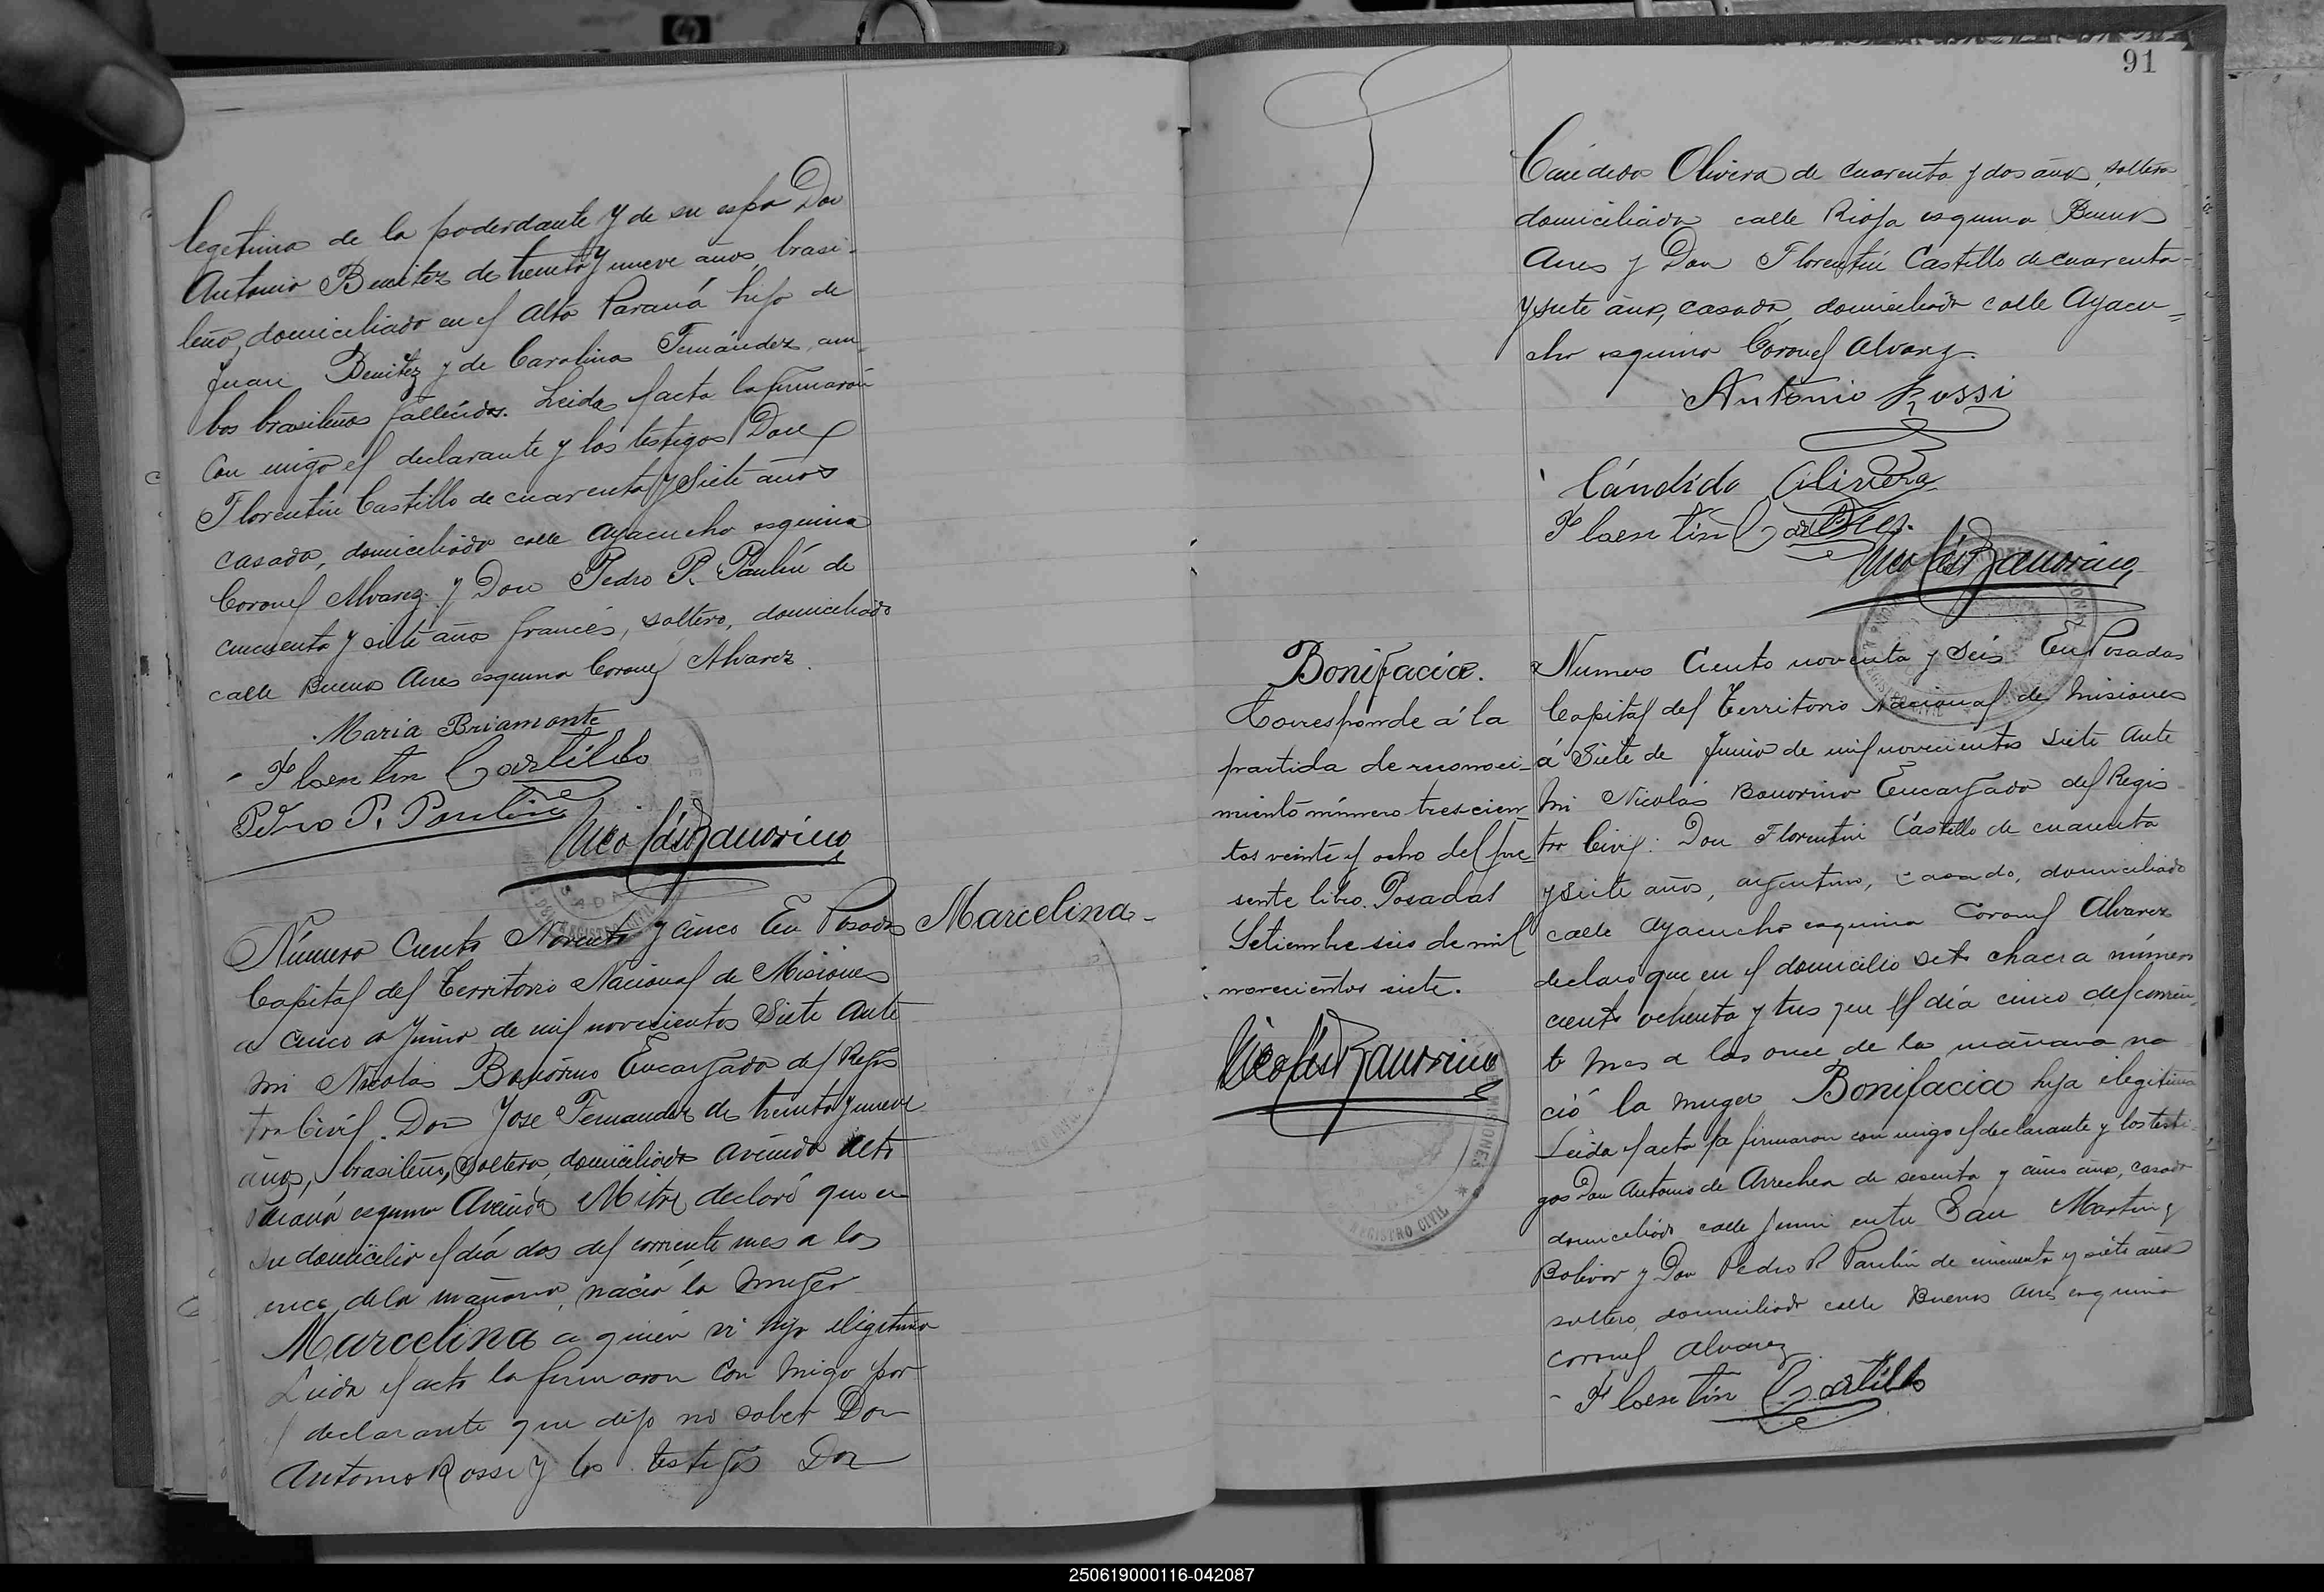 legitima de la poderdante y de su espo Don
Antonio Benitez de treinta y nueve años, brasi-
leño, domiciliado en el Alto Paraná hijo de
Juan Benitez y de Carolina Fernández, am
bos brasileños fallecidos. Leida l'acta la firmaron
con migo el declarante y los testigos Don
Florentin Castillo de cuarenta y siete años
casado, domiciliado calle Ayacucho esquina
Coronel Alvarez y Don Pedro P. Paulin de
cincuenta y siete años francés, soltero, domiciliado
calle Buenos Aires esquina Coronel Alvarez.
Maria Briamonte
Florentin Castillo
Pedro P. Paulin
Nicolás Bonorino
Número Ciento Noventa y cinco En Posadas
Marcelina-
Capital del Territorio Nacional de Misiones
a cinco de Junio de mil novecientos Siete Ante
mi Nicolás Bonorino Encargado del Regis
tro Civil. Don Jose Fernandez de treinta y nueve
años, brasileño, soltero, domiciliado Avenida Alto
Paraná esquina Avenida Mitre declaró que en
su domicilio el día dos del corriente mes a las
once de la mañana, nació la muger
Marcelina a quien vi hija ilegitima
Leida el acta la firmaron con migo por
el declarante que dijo no saber Don
Antonio Rossi y los testigos Don
91
Cándido Olivera de cuarenta y dos años, soltero
domiciliado calle Rioja esquina Buenos
Aires y Don Florentin Castillo de cuarenta
y siete años, casado, domiciliado calle Ayacu=
cho esquina Coronel Alvarez.
Antonio Rossi
Cándido Olivera
Florentin Castillo
Nicolás Bonorino
Bonifacia.
Corresponde á la
partida de reconoci-
miento número trescien-
tos veinte y ocho del pre-
sente libro. Posadas
Setiembre seis de mil
novecientos siete.
Nicolás Bonorino
Numero Ciento noventa y Seis En Posadas
Capital del Territorio Nacional de Misiones
á Siete de Junio de mil novecientos siete Ante
mi Nicolás Bonorino Encargado del Regis
tro Civil: Don Florentin Castillo de cuarenta
y siete años, argentino, casado, domiciliado
calle Ayacucho esquina Coronel Alvarez
declaro que en el domicilio chacra número
ciento ochenta y tres que el día cinco del corrien
te mes a las once de la mañana na
ció la muger Bonifacia hija ilegitima
Leida el acta la firmaron con migo el declarante y los testi
gos Don Antonio de Arrechea de sesenta y cinco años, casado
domiciliado calle Junin entre San Martin y
Bolivar y Don Pedro P. Paulin de cincuenta y siete años
soltero, domiciliado calle Buenos Aires esquina
Coronel Alvarez.
Florentin Castillo
REGISTRO CIVIL
MISIONES
250619000116-042087